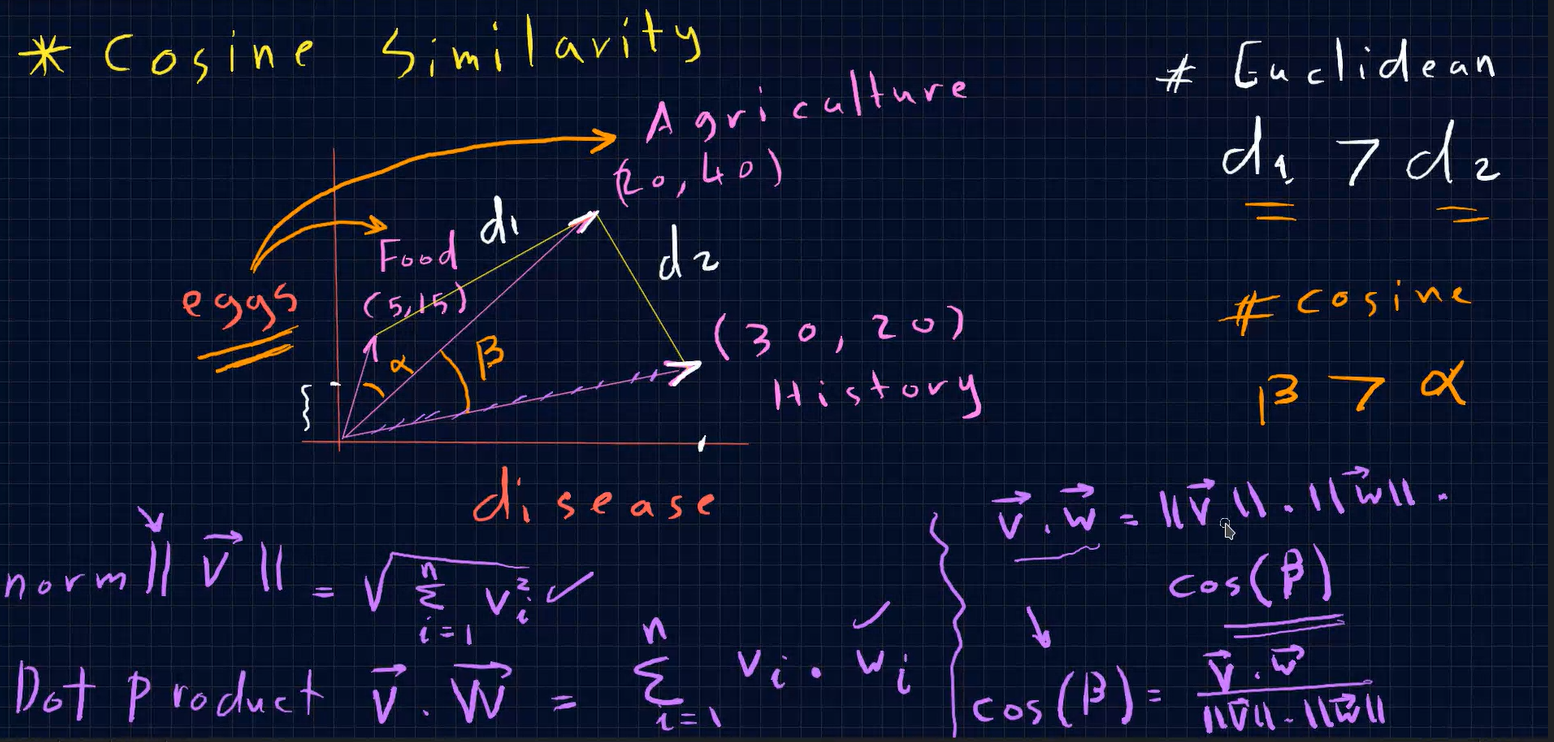 * Cosine Similarity
Agriculture
(20, 40)
d1
Food
(5, 15)
d2
eggs
α
β
(30, 20)
History
disease
# Euclidean
d1 > d2
# Cosine
β > α
norm ‖v⃗‖ = √(∑ᵢ₌₁ⁿ vᵢ²) ✓
Dot Product v⃗ . w⃗ = ∑ᵢ₌₁ⁿ vᵢ . wᵢ ✓
v⃗ . w⃗ = ‖v⃗‖ . ‖w⃗‖ .
cos(β)
cos(β) = v⃗ . w⃗ / ‖v⃗‖ . ‖w⃗‖